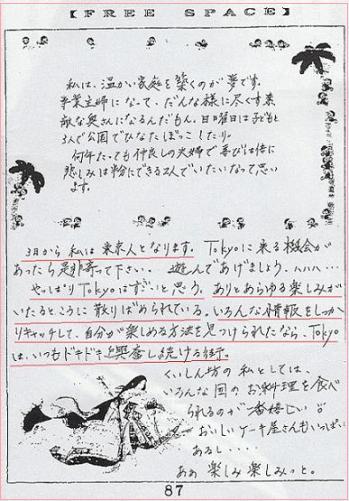 【FREE SPACE】
私は、温かい家庭を築くのが夢です。
専業主婦になって、だんな様に尽くす素
敵な奥さんになるんだもん。日曜日は子どもと
3人で公園でひなたぼっこしたり。
何年たっても仲良しの夫婦で喜びは倍に
悲しみは粉にできる2人でいたいなって思い
ます。
3月から私は東京人となります。Tokyoに来る機会が
あったら是非寄って下さい。遊んであげましょう、ハハハ…
やっぱりTokyoはすごいと思う。ありとあらゆる楽しみが
いたるところに散りばめられている。いろんな情報をしっか
りキャッチして、自分が楽しめる方法を見つけられたなら、Tokyo
は、いつもドキドキ興奮し続ける街。
くいしん坊の私としては、
いろんな国のお料理を食べ
られるのが一番嬉しい
おいしいケーキ屋さんもいっぱい
あるし・・・・
あぁ楽しみ楽しみっと。
87